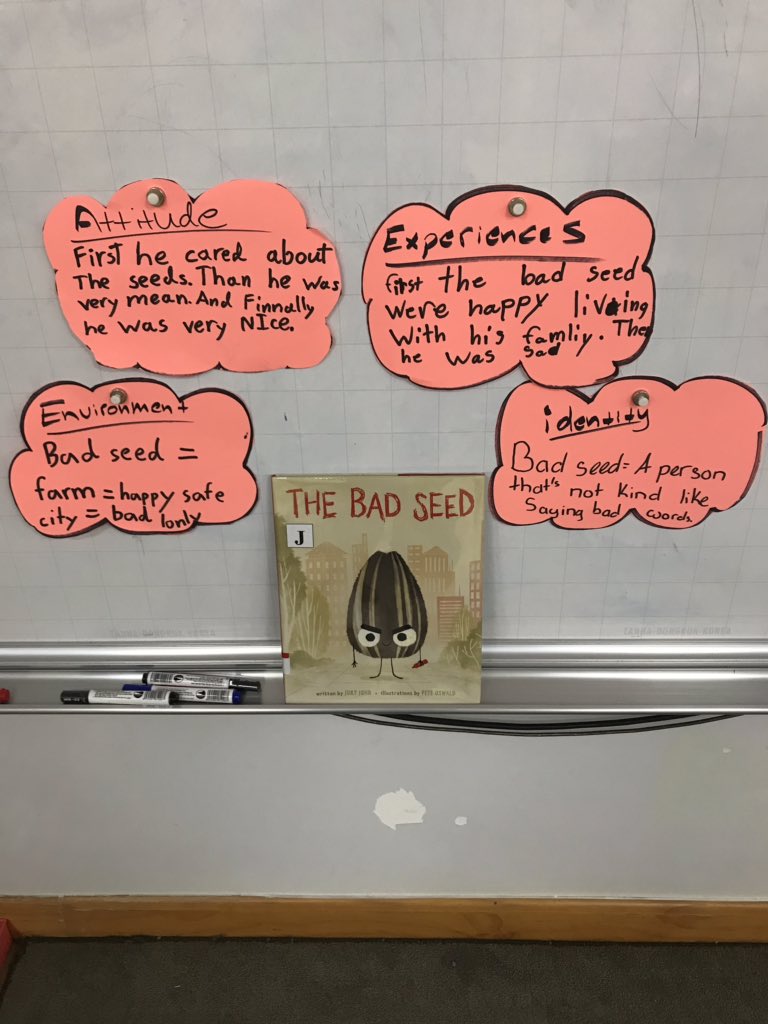 Attitude
First he cared about
The seeds. Than he was
very mean. And Finnally
he was very NIce.
Experiences
first the bad seed
were happy living
With his famliy. The
he was sad
Environment
Bad seed =
farm = happy safe
city = bad lonly
identity
Bad seed = A person
that's not kind like
Saying bad words
THE BAD SEED
J
written by JORY JOHN • illustrations by PETE OSWALD